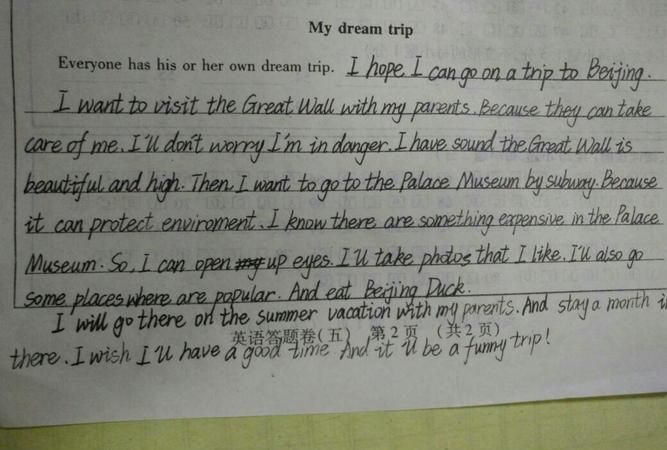 My dream trip
Everyone has his or her own dream trip. I hope I can go on a trip to Beijing.
I want to visit the Great Wall with my parents. Because they can take
care of me. I'll don't worry I'm in danger. I have sound the Great Wall is
beautiful and high. Then, I want to go to the Palace Museum by subway. Because
it can protect enviroment. I know there are something expensive in the Palace
Museum. So, I can open my up eyes. I'll take photos that I like. I'll also go
some places where are popular. And eat Beijing Duck.
I will go there on the summer vacation with my parents. And stay a month i
英语答题卷(五) 第2页 (共2页)
there. I wish I'll have a good time And it'll be a funny trip!